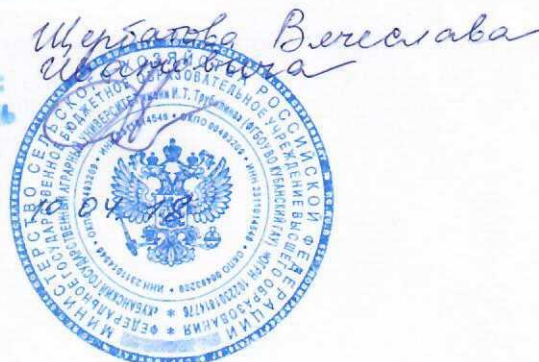 Щербатова Вячеслава
Ивановича
МИНИСТЕРСТВО СЕЛЬСКОГО ХОЗЯЙСТВА РОССИЙСКОЙ ФЕДЕРАЦИИ
ФЕДЕРАЛЬНОЕ ГОСУДАРСТВЕННОЕ БЮДЖЕТНОЕ ОБРАЗОВАТЕЛЬНОЕ УЧРЕЖДЕНИЕ ВЫСШЕГО ОБРАЗОВАНИЯ
«КУБАНСКИЙ ГОСУДАРСТВЕННЫЙ АГРАРНЫЙ УНИВЕРСИТЕТ имени И.Т. Трубилина» (ФГБОУ ВО КУБАНСКИЙ ГАУ)
ИНН 2311014546 • ОКПО 00493209
10.04.18